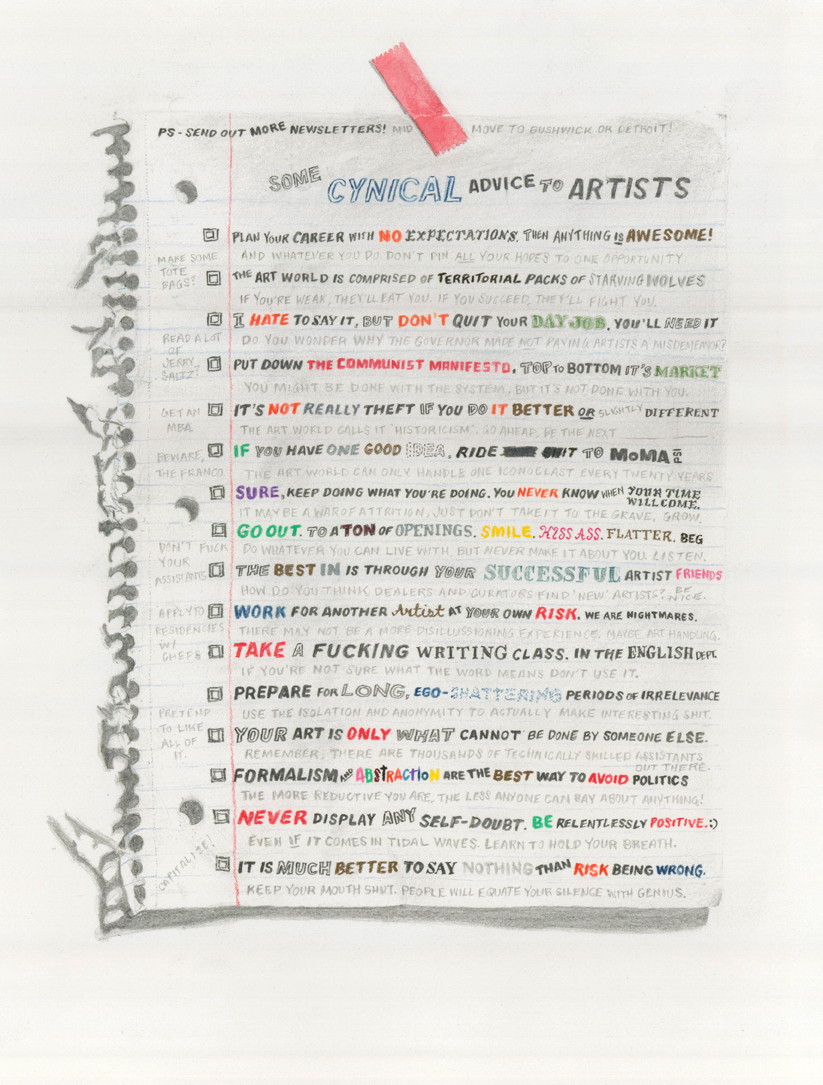 PS - SEND OUT MORE NEWSLETTERS! AND MOVE TO BUSHWICK OR DETROIT!
SOME CYNICAL ADVICE TO ARTISTS
PLAN YOUR CAREER WITH NO EXPECTATIONS. THEN ANYTHING IS AWESOME!
AND WHATEVER YOU DO DON'T PIN ALL YOUR HOPES TO ONE OPPORTUNITY.
MAKE SOME
TOTE
BAGS?
THE ART WORLD IS COMPRISED OF TERRITORIAL PACKS OF STARVING WOLVES
IF YOU'RE WEAK, THEY'LL EAT YOU. IF YOU SUCCEED, THEY'LL FIGHT YOU.
I HATE TO SAY IT, BUT DON'T QUIT YOUR DAY JOB. YOU'LL NEED IT
DO YOU WONDER WHY THE GOVERNOR MADE NOT PAYING ARTISTS A MISDEMEANOR?
READ A LOT
OF
JERRY
SALTZ?
PUT DOWN THE COMMUNIST MANIFESTO. TOP TO BOTTOM IT'S MARKET
YOU MIGHT BE DONE WITH THE SYSTEM, BUT IT'S NOT DONE WITH YOU.
GET AN
MBA
IT'S NOT REALLY THEFT IF YOU DO IT BETTER OR SLIGHTLY DIFFERENT
THE ART WORLD CALLS IT "HISTORICISM". GO AHEAD, BE THE NEXT
BEWARE,
THE FRANCO
IF YOU HAVE ONE GOOD IDEA, RIDE IT TO MoMA PS1
THE ART WORLD CAN ONLY HANDLE ONE ICONOCLAST EVERY TWENTY YEARS
SURE, KEEP DOING WHAT YOU'RE DOING. YOU NEVER KNOW WHEN YOUR TIME WILL COME.
IT MAY BE A WAR OF ATTRITION, JUST DON'T TAKE IT TO THE GRAVE, GROW.
GO OUT. TO A TON OF OPENINGS. SMILE. KISS ASS. FLATTER. BEG
DO WHATEVER YOU CAN LIVE WITH, BUT NEVER MAKE IT ABOUT YOU. LISTEN.
DON'T FUCK
YOUR
ASSISTANTS
THE BEST IN IS THROUGH YOUR SUCCESSFUL ARTIST FRIENDS
HOW DO YOU THINK DEALERS AND CURATORS FIND 'NEW' ARTISTS? BE NICE.
APPLY TO
RESIDENCIES
W/
CHEFS
WORK FOR ANOTHER Artist AT YOUR OWN RISK. WE ARE NIGHTMARES.
THERE MAY NOT BE A MORE DISILLUSSIONING EXPERIENCE. MAYBE ART HANDLING.
TAKE A FUCKING WRITING CLASS. IN THE ENGLISH DEPT.
IF YOU'RE NOT SURE WHAT THE WORD MEANS DON'T USE IT.
PREPARE FOR LONG, EGO-SHATTERING PERIODS OF IRRELEVANCE
USE THE ISOLATION AND ANONYMITY TO ACTUALLY MAKE INTERESTING SHIT.
PRETEND
TO LIKE
ALL OF
IT.
YOUR ART IS ONLY WHAT CANNOT BE DONE BY SOMEONE ELSE.
REMEMBER, THERE ARE THOUSANDS OF TECHNICALLY SKILLED ASSISTANTS OUT THERE.
FORMALISM AND ABSTRACTION ARE THE BEST WAY TO AVOID POLITICS
THE MORE REDUCTIVE YOU ARE, THE LESS ANYONE CAN SAY ABOUT ANYTHING!
NEVER DISPLAY ANY SELF-DOUBT. BE RELENTLESSLY POSITIVE. :)
EVEN IF IT COMES IN TIDAL WAVES. LEARN TO HOLD YOUR BREATH.
CAPITALIZE!
IT IS MUCH BETTER TO SAY NOTHING THAN RISK BEING WRONG.
KEEP YOUR MOUTH SHUT. PEOPLE WILL EQUATE YOUR SILENCE WITH GENIUS.